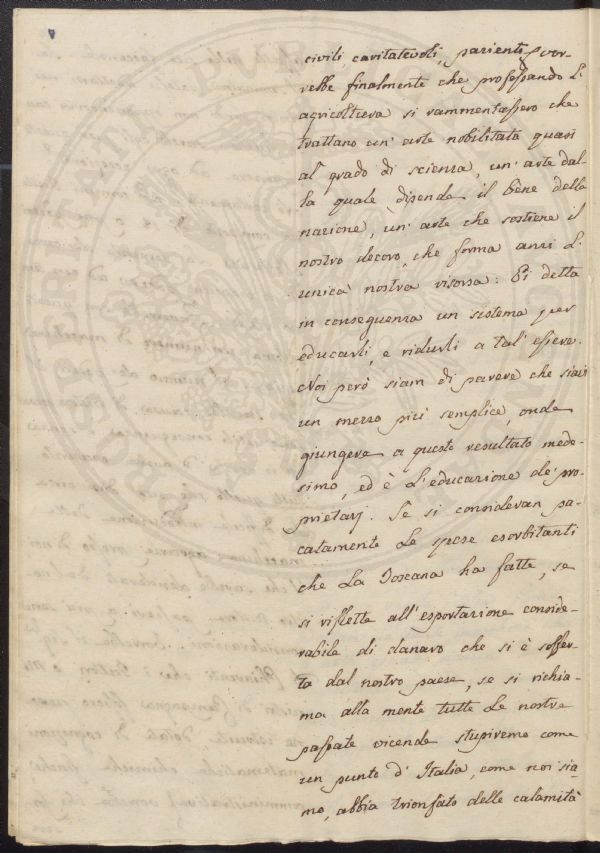 civili, caritatevoli, pazienti, vor-
rebbe finalmente che professando L'
agricoltura si rammentassero che
trattano un' arte nobilitata quasi
al grado di scienza, un' arte dal-
la quale dipende il bene della
nazione, un' arte che sostiene il
nostro decoro, che forma anzi L'
unica nostra risorsa: Ei detta
in conseguenza un sistema per
educarli, e ridurli a tal' essere.
Noi però siam di parere che siavi
un mezzo più semplice, onde
giungere a questo resultato mede-
simo, ed è L'educazione de' pro-
prietarj. Se si consideran pa-
catamente Le spese esorbitanti
che La Toscana ha fatte, se
si riflette all' esportazione conside-
rabile di danaro che si è soffer-
ta dal nostro paese, se si richia-
ma alla mente tutte Le nostre
passate vicende stupiremo come
un punto d' Italia, come noi sia-
mo, abbia trionfato delle calamità